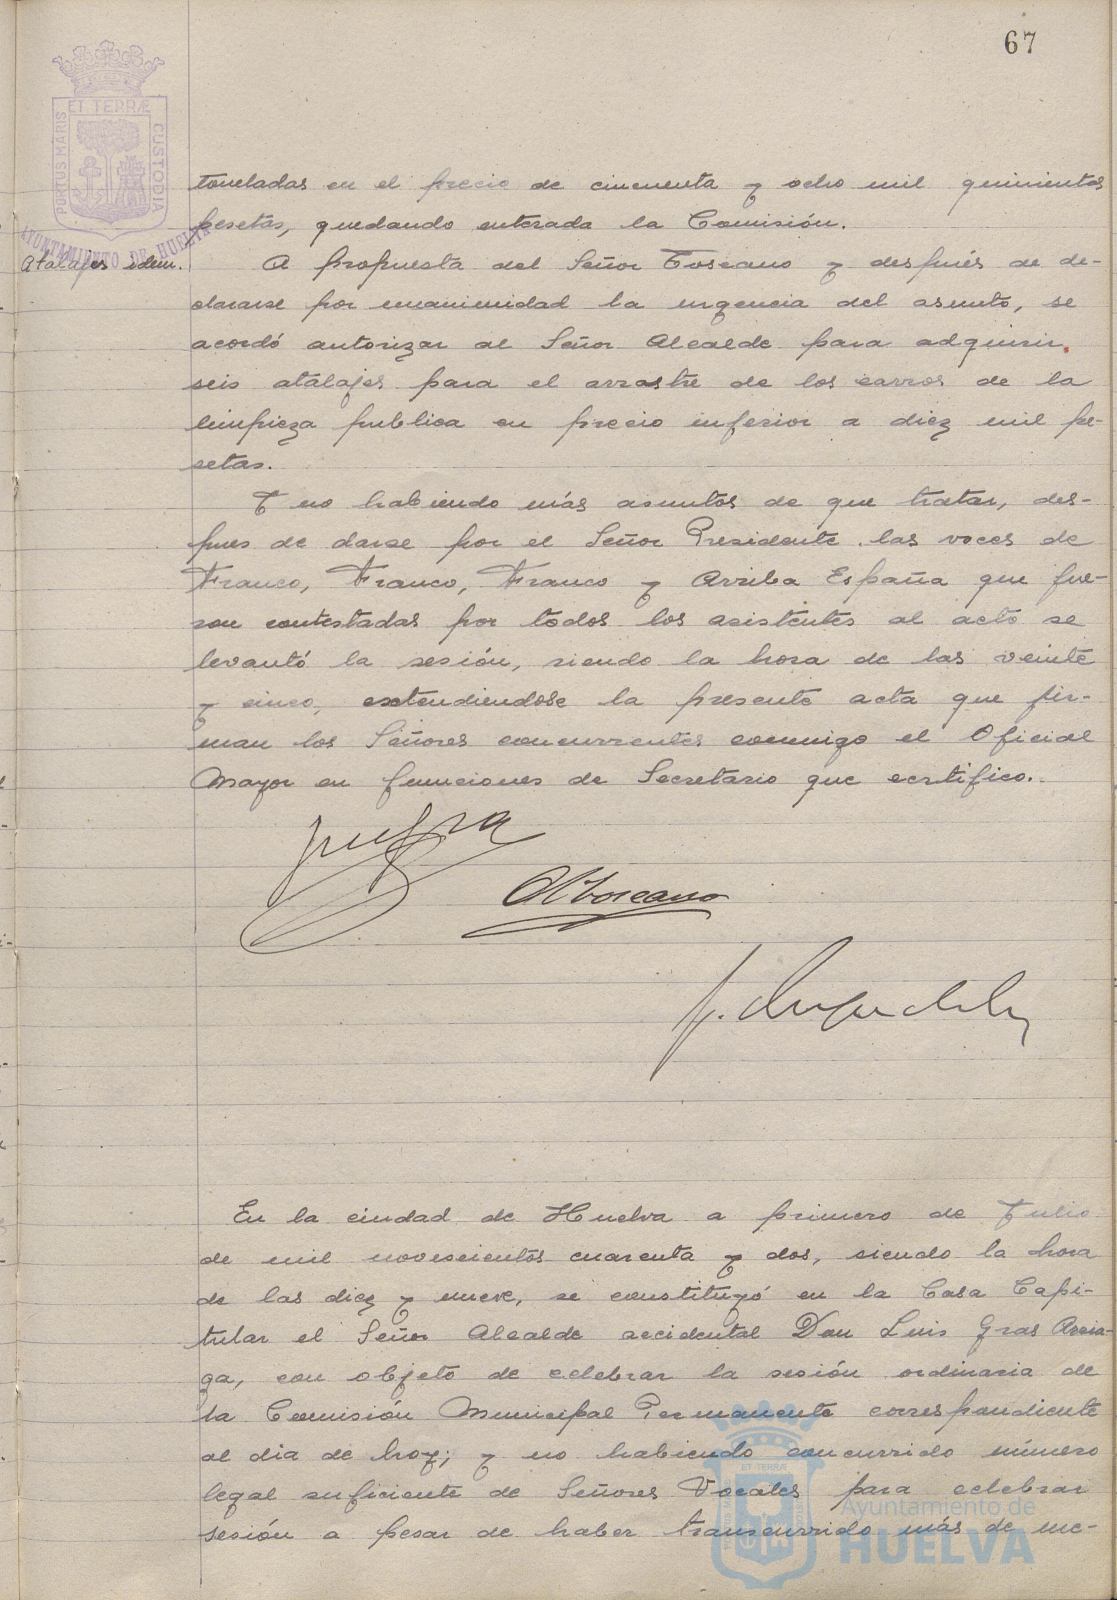 67
PORTUS MARIS ET TERRÆ CUSTODIA
AYUNTAMIENTO DE HUELVA
toneladas en el precio de cincuenta y ocho mil quinientas
pesetas, quedando enterada la Comisión.
Atalajes idem.
A propuesta del Señor Toscano y después de de-
clararse por unanimidad la urgencia del asunto, se
acordó autorizar al Señor Alcalde para adquirir
seis atalajes para el arrastre de los carros de la
limpieza publica en precio inferior a diez mil pe-
setas.
Y no habiendo más asuntos de que tratar, des-
pues de darse por el Señor Presidente las voces de
Franco, Franco, Franco y Arriba España que fue-
ron contestadas por todos los asistentes al acto se
levantó la sesión, siendo la hora de las veinte
y cinco, extendiendose la presente acta que fir-
man los Señores concurrentes conmigo el Oficial
Mayor en funciones de Secretario que certifico.
Toscano
En la ciudad de Huelva a primero de Julio
de mil novescientos cuarenta y dos, siendo la hora
de las diez y nueve, se constituyó en la Casa Capi-
tular el Señor Alcalde accidental Don Luis Gras Arria-
ga, con objeto de celebrar la sesión ordinaria de
la Comisión Municipal Permanente correspondiente
al dia de hoy; y no habiendo concurrido número
legal suficiente de Señores Vocales para celebrar
sesión a pesar de haber transcurrido más de me-
Ayuntamiento de
HUELVA